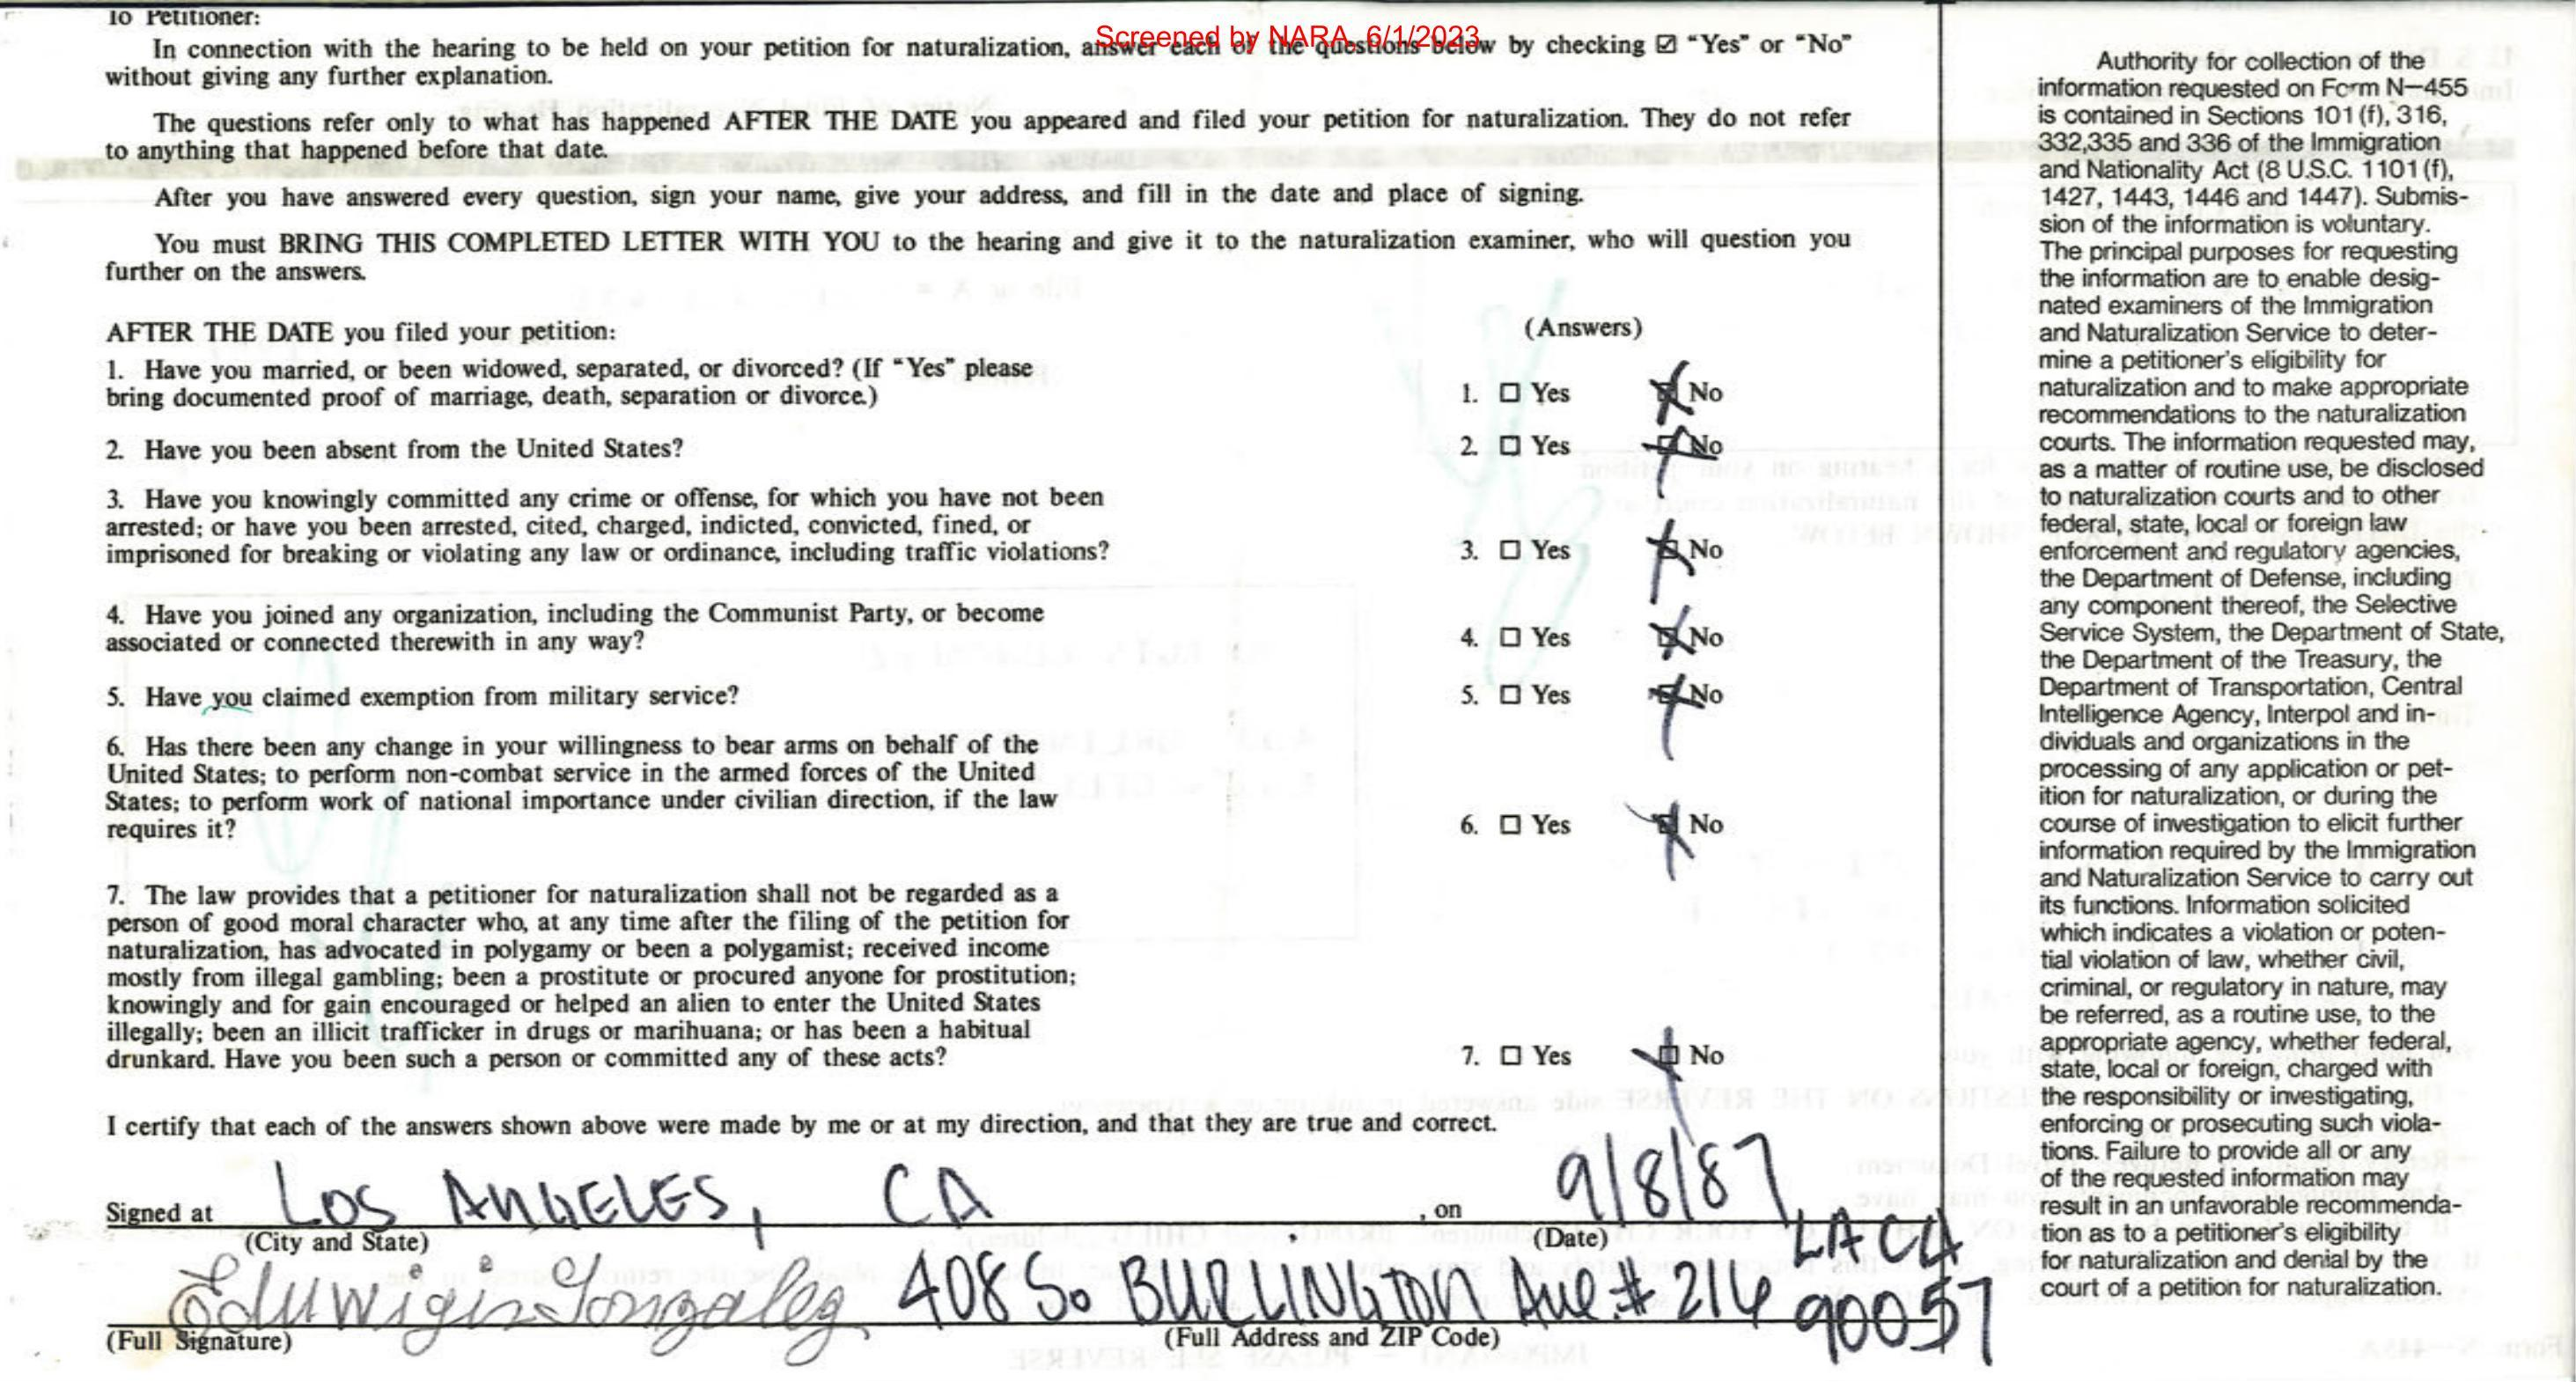 To Petitioner:
Screened by NARA, 6/1/2023
In connection with the hearing to be held on your petition for naturalization, answer each of the questions below by checking ☑ “Yes” or “No”
without giving any further explanation.
The questions refer only to what has happened AFTER THE DATE you appeared and filed your petition for naturalization. They do not refer
to anything that happened before that date.
After you have answered every question, sign your name, give your address, and fill in the date and place of signing.
You must BRING THIS COMPLETED LETTER WITH YOU to the hearing and give it to the naturalization examiner, who will question you
further on the answers.
AFTER THE DATE you filed your petition:
(Answers)
1. Have you married, or been widowed, separated, or divorced? (If “Yes” please
bring documented proof of marriage, death, separation or divorce.)
1. ☐ Yes ☒ No
2. Have you been absent from the United States?
2. ☐ Yes ☒ No
3. Have you knowingly committed any crime or offense, for which you have not been
arrested; or have you been arrested, cited, charged, indicted, convicted, fined, or
imprisoned for breaking or violating any law or ordinance, including traffic violations?
3. ☐ Yes ☒ No
4. Have you joined any organization, including the Communist Party, or become
associated or connected therewith in any way?
4. ☐ Yes ☒ No
5. Have you claimed exemption from military service?
5. ☐ Yes ☒ No
6. Has there been any change in your willingness to bear arms on behalf of the
United States; to perform non-combat service in the armed forces of the United
States; to perform work of national importance under civilian direction, if the law
requires it?
6. ☐ Yes ☒ No
7. The law provides that a petitioner for naturalization shall not be regarded as a
person of good moral character who, at any time after the filing of the petition for
naturalization, has advocated in polygamy or been a polygamist; received income
mostly from illegal gambling; been a prostitute or procured anyone for prostitution;
knowingly and for gain encouraged or helped an alien to enter the United States
illegally; been an illicit trafficker in drugs or marihuana; or has been a habitual
drunkard. Have you been such a person or committed any of these acts?
7. ☐ Yes ☒ No
I certify that each of the answers shown above were made by me or at my direction, and that they are true and correct.
Signed at LOS ANGELES, CA , on 9/8/87
(City and State) (Date)
Eduwigis Gonzalez 408 So BURLINGTON Ave # 214 LA CA 90057
(Full Signature) (Full Address and ZIP Code)
Authority for collection of the
information requested on Form N—455
is contained in Sections 101 (f), 316,
332,335 and 336 of the Immigration
and Nationality Act (8 U.S.C. 1101 (f),
1427, 1443, 1446 and 1447). Submis-
sion of the information is voluntary.
The principal purposes for requesting
the information are to enable desig-
nated examiners of the Immigration
and Naturalization Service to deter-
mine a petitioner's eligibility for
naturalization and to make appropriate
recommendations to the naturalization
courts. The information requested may,
as a matter of routine use, be disclosed
to naturalization courts and to other
federal, state, local or foreign law
enforcement and regulatory agencies,
the Department of Defense, including
any component thereof, the Selective
Service System, the Department of State,
the Department of the Treasury, the
Department of Transportation, Central
Intelligence Agency, Interpol and in-
dividuals and organizations in the
processing of any application or pet-
ition for naturalization, or during the
course of investigation to elicit further
information required by the Immigration
and Naturalization Service to carry out
its functions. Information solicited
which indicates a violation or poten-
tial violation of law, whether civil,
criminal, or regulatory in nature, may
be referred, as a routine use, to the
appropriate agency, whether federal,
state, local or foreign, charged with
the responsibility or investigating,
enforcing or prosecuting such viola-
tions. Failure to provide all or any
of the requested information may
result in an unfavorable recommenda-
tion as to a petitioner's eligibility
for naturalization and denial by the
court of a petition for naturalization.